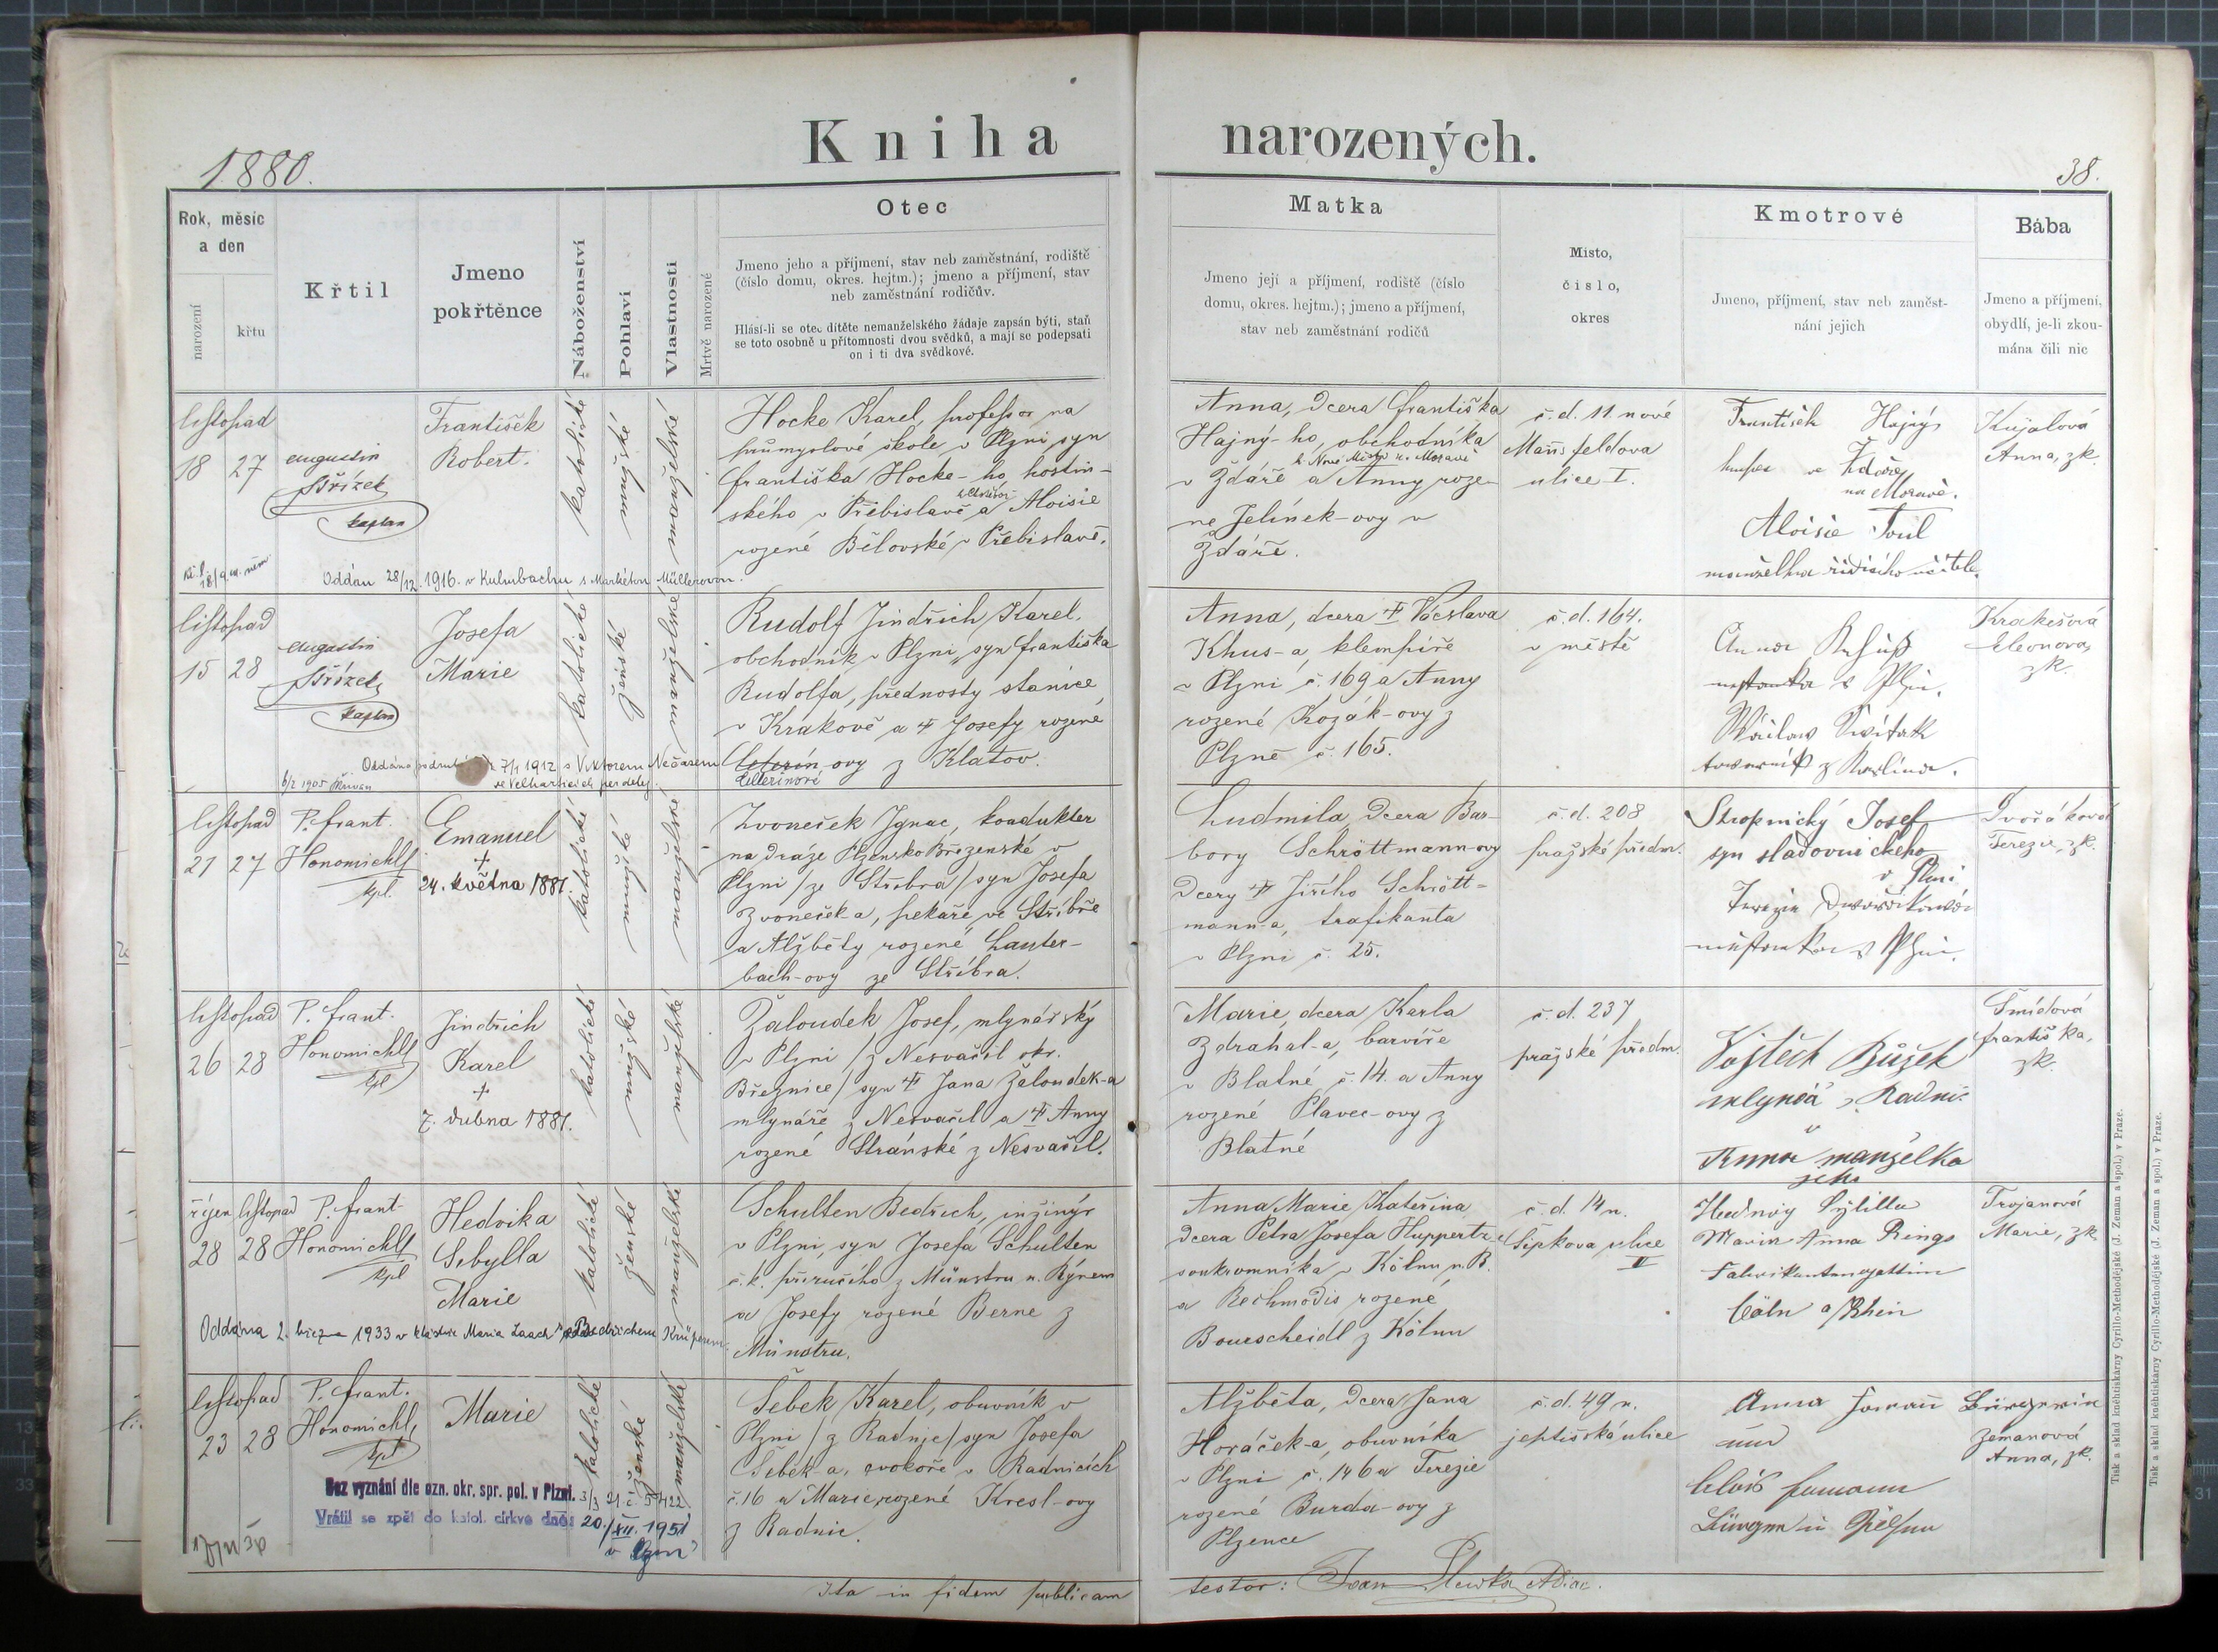 Kniha narozených.
1880.
38.
Rok, měsíc
a den
narození
křtu
Křtil
Jmeno
pokřtěnce
Náboženství
Pohlaví
Vlastnosti
Mrtvě narozené
Otec
Jmeno jeho a příjmení, stav neb zaměstnání, rodiště
(číslo domu, okres. hejtm.); jmeno a příjmení, stav
neb zaměstnání rodičův.
Hlásí-li se otec dítěte nemanželského žádaje zapsán býti, staň
se toto osobně u přítomnosti dvou svědků, a mají se podepsati
on i ti dva svědkové.
Matka
Jmeno její a příjmení, rodiště (číslo
domu, okres. hejtm.); jmeno a příjmení,
stav neb zaměstnání rodičů
Místo,
číslo,
okres
Kmotrové
Jmeno, příjmení, stav neb zaměst-
nání jejich
Bába
Jmeno a příjmení,
obydlí, je-li zkou-
mána čili nic
listopad
18 27
Augustin
Střízek
kaplan
František
Robert.
katolické
mužské
manželské
Hocke Karel, professor na
průmyslové škole v Plzni syn
Františka Hocke-ho, hostin-
ského v Přibislavě a Aloisie
rozené Bělovské z Přebislavě.
Oddán 28/12. 1916. v Kulmbachu s Markétou Müllerovou.
Anna, dcera Františka
Hajný-ho, obchodníka
v Ždáře a Anny roze-
né Jelínek-ovy v
Ždáře.
č. d. 11 nové
Mannsfeldova
ulice I.
František Hajný
kupec ve Ždáře
na Moravě.
Aloisie Toul
manželka řídícího učitele.
Kujalová
Anna, zk.
listopad
15 28
Augustin
Střízek
kaplan
Josefa
Marie
katolické
ženské
manželské
Rudolf Jindřich Karel,
obchodník v Plzni, syn Františka
Rudolfa, přednosty stanice
v Krakově a † Josefy rozené
ovy z Klatov.
7/1 1912 s Viktorem Nečasem
Anna, dcera † Václava
Khus-a, klempíře
v Plzni č. 169 a Anny
rozené Kozák-ovy z
Plzně č. 165.
č. d. 164.
v městě
Anna
z
Krakešová
Eleonora,
zk.
listopad
21 27
P. Frant.
Honomichl
kpl.
Emanuel
†
24. května 1881.
katolické
mužské
manželské
Zvoneček Ignac, kondukter
na dráze Plzensko Březenské v
Plzni /ze Stříbra/ syn Josefa
Zvoneček-a, pekaře ve Stříbře
a Alžběty rozené Lauter-
bach-ovy ze Stříbra.
Ludmila, dcera Bar-
bory Schröttmann-ovy
dcery † Jiřího Schrött-
mann-a, trafikanta
v Plzni č. 25.
č. d. 208
pražské předm.
Stropnický Josef
syn sladovnického
v Plzni
Terezie Dvořáková
měšťanka v Plzni.
Dvořáková
Terezie, zk.
listopad
26 28
P. Frant.
Honomichl
kpl
Jindřich
Karel
†
7. dubna 1881.
katolické
mužské
manželské
Žaloudek Josef, mlynářský
v Plzni /z Nesvačil okr.
Březnice/ syn † Jana Žaloudek-a
mlynáře z Nesvačil a † Anny
rozené Stránské z Nesvačil.
Marie, dcera Karla
Zdrahal-a, barvíře
v Blatné, č. 14. a Anny
rozené Plavec-ovy z
Blatné
č. d. 237
pražské předm.
Vojtěch Bůžek
mlynář z Radnic
Anna manželka
jeho
Šmídová
Františka,
zk.
říjen listopad
28 28
P. Frant.
Honomichl
kpl
Hedvika
Sibylla
Marie
katolické
ženské
manželské
Schulten Bedřich, inžinýr
v Plzni, syn Josefa Schulten
a Josefy rozené Berne z
Münstru.
Oddána 2. března 1933 v klášteře Maria Laach s Bedřichem
Anna Marie Kateřina
dcera Petra Josefa Huppertz
soukromníka v Kölnu n. R.
a Rechmodis rozené
Bourscheidl z Kölnu
č. d. 14 n.
Šipkova ulice
II
Hedwig Sybilla
Maria Anna Rings
Fabrikantengattin
Cöln a/Rhein
Trojanová
Marie, zk.
listopad
23 28
P. Frant.
Honomichl,
kpl
Marie
katolické
ženské
manželské
Šebek Karel, obuvník v
Plzni /z Radnic/ syn Josefa
Šebek-a, cvokoře v Radnicích
č. 16 a Marie rozené Kresl-ovy
z Radnic.
Bez vyznání dle ozn. okr. spr. pol. v Plzni. 3/3 21 č. 5422.
Vrátil se zpět do katol. církve dne: 20./XII. 1951
v Plzni
Alžběta, dcera Jana
Horáček-a, obuvníka
v Plzni č. 146 a Terezie
rozené Burda-ovy z
Plzence
č. d. 49 n.
jeptišská ulice
Anna
und
Alois
Bürger in Pilsen
Zemanová
Anna, zk.
Ita in fidem publicam
testor:
Tisk a sklad knihtiskárny Cyrillo-Methodějské (J. Zeman a spol.) v Praze.
Tisk a sklad knihtiskárny Cyrillo-Methodějské (J. Zeman a spol.) v Praze.